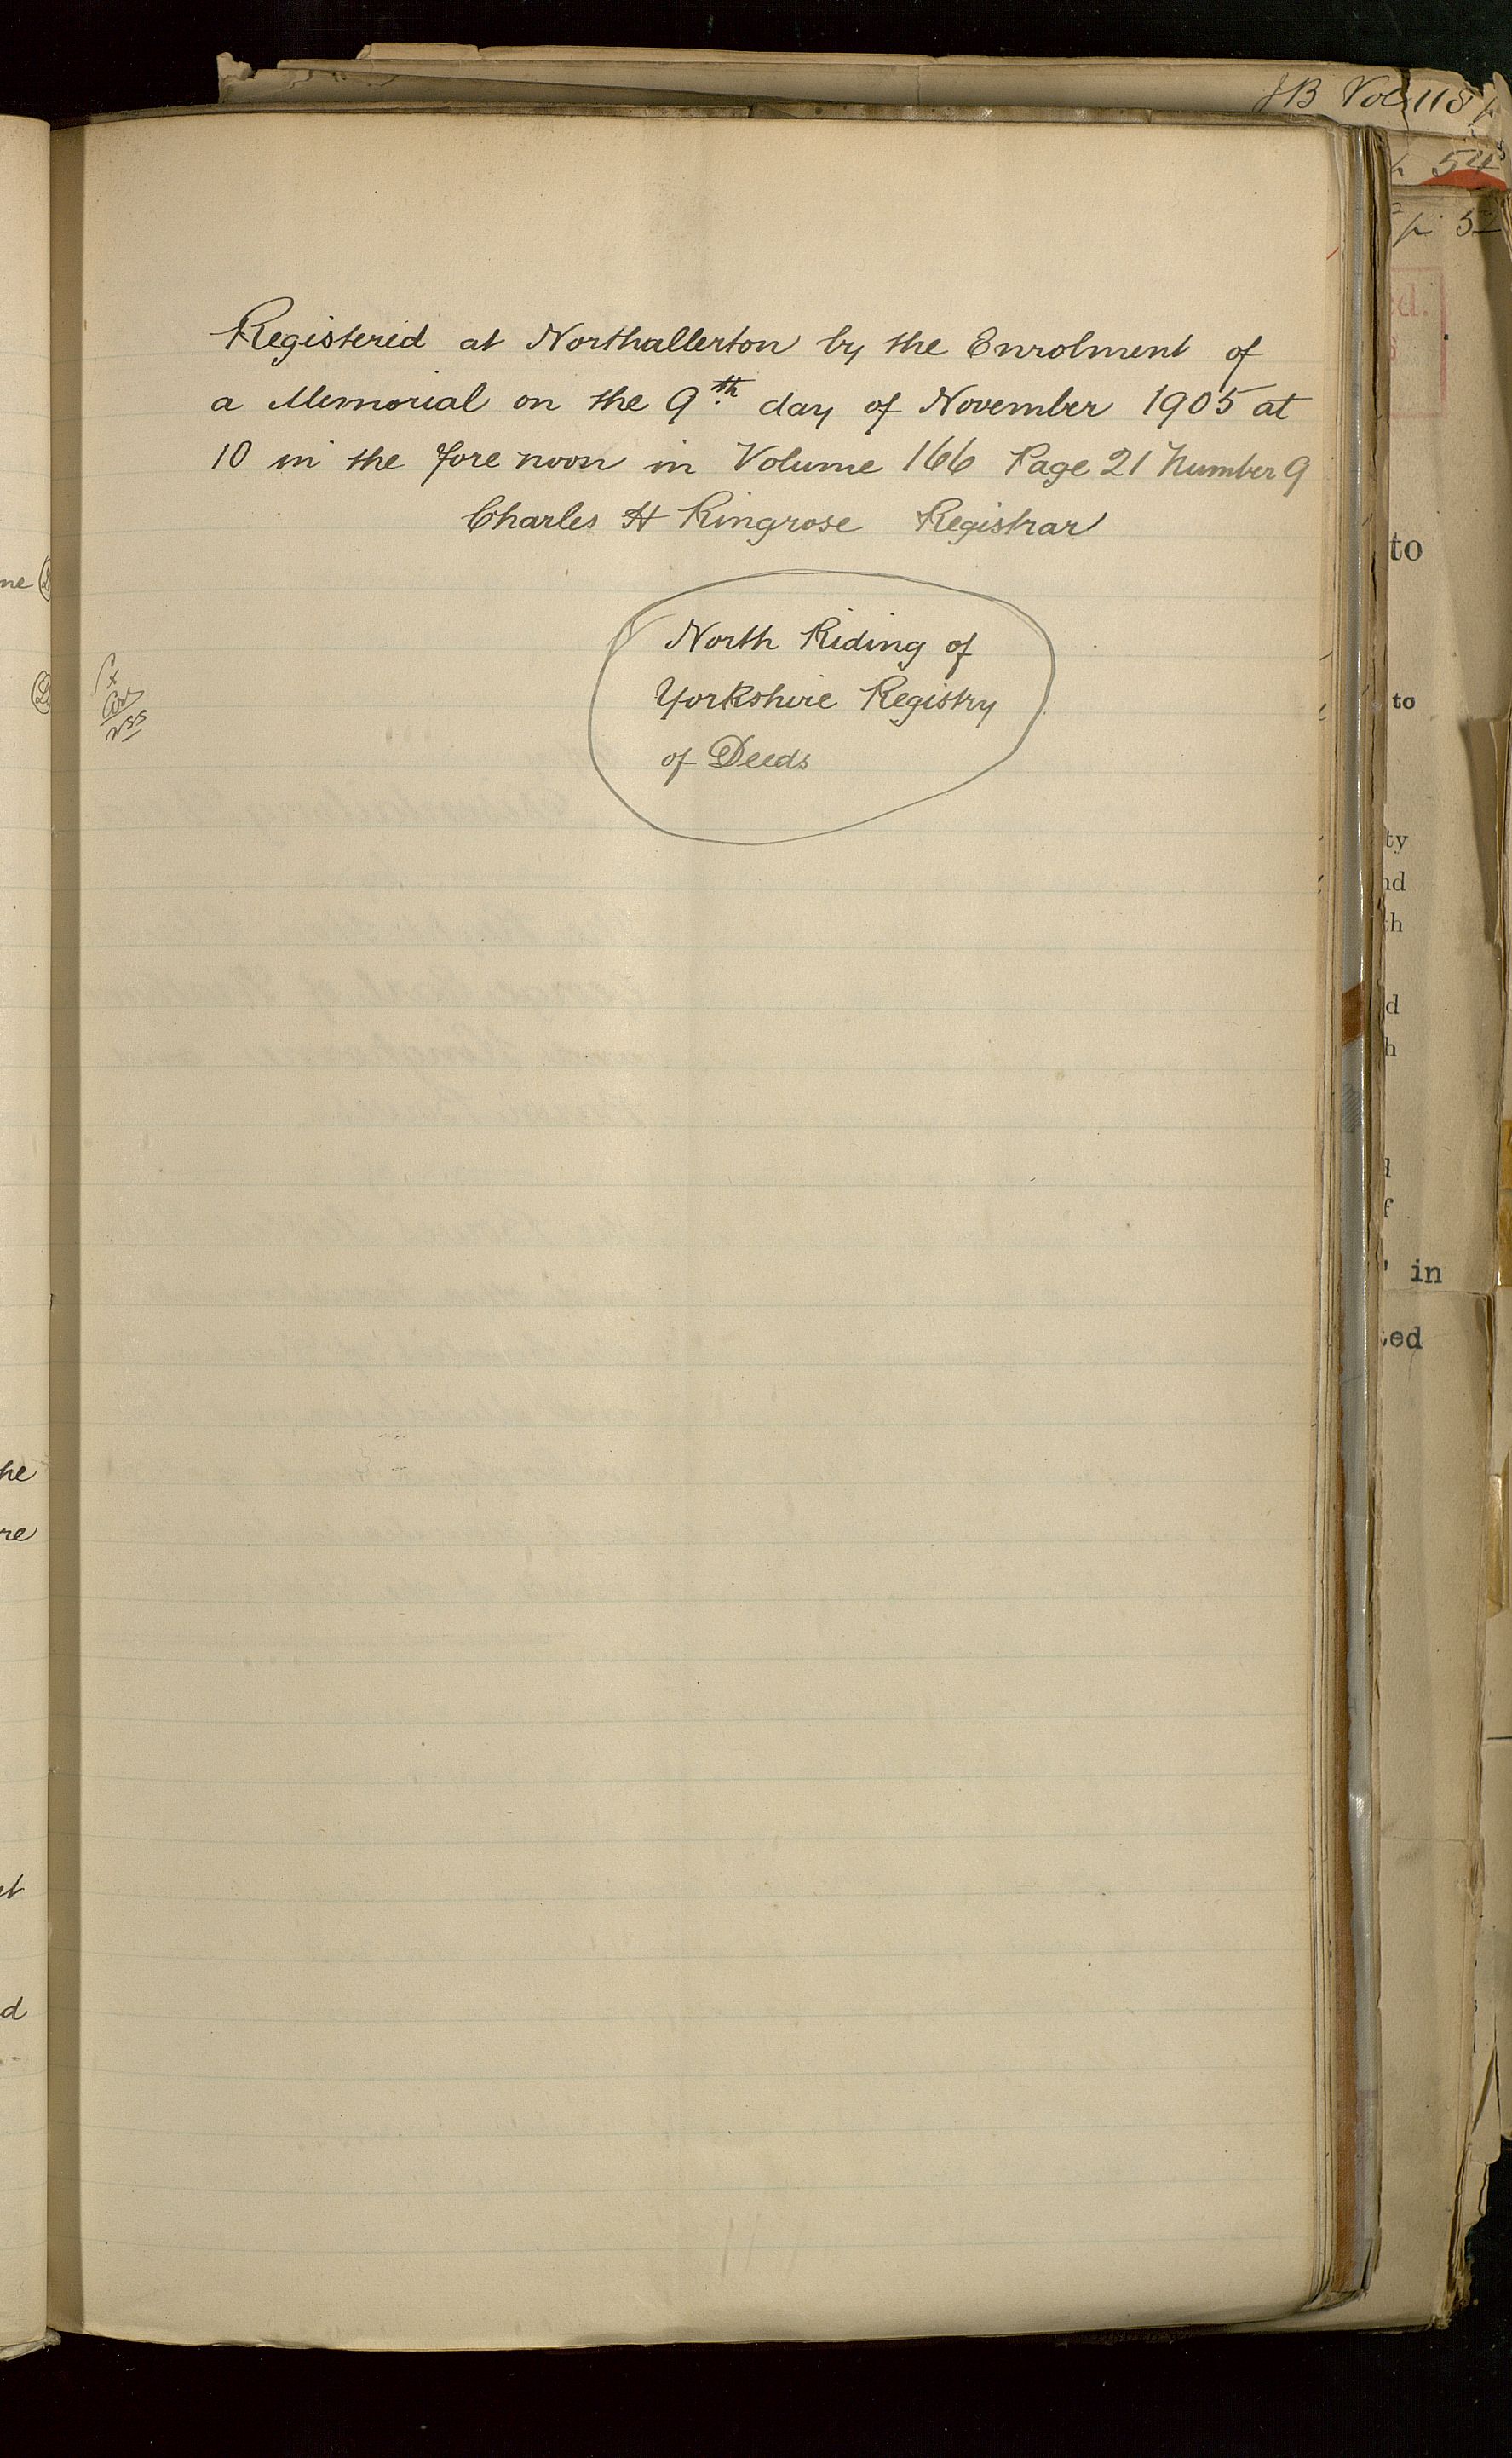 Registered at Northallerton by the Enrolment of
a Memorial on the 9th day of November 1905 at
10 in the fore noon in Volume 166 Page 21 Number 9
Charles H Ringrose Registrar
North Riding of
Yorkshire Registry
of Deeds
Vol 118
54
to
to
ty
nd
th
d
h
f
in
ted
he
re
d